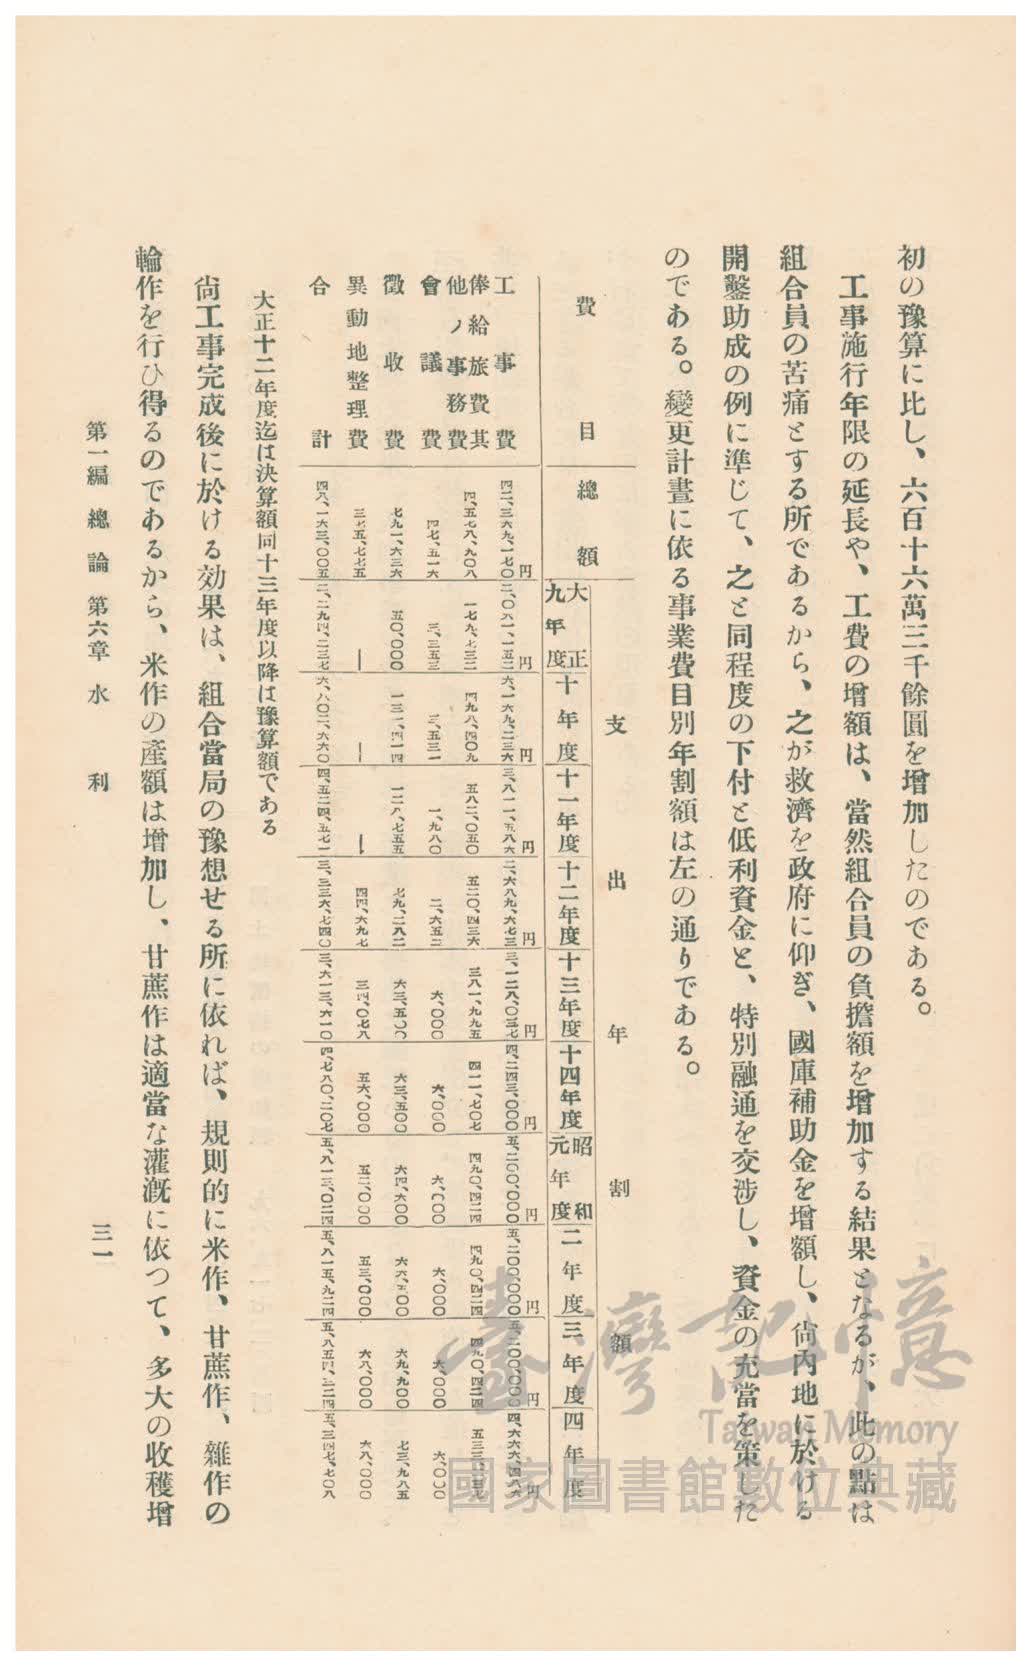 初の豫算に比し、六百十六萬三千餘圓を增加したのである。
工事施行年限の延長や、工費の增額は、當然組合員の負擔額を增加する結果となるが、此の點は
組合員の苦痛とする所であるから、之が救濟を政府に仰ぎ、國庫補助金を增額し、尙內地に於ける
開鑿助成の例に準じて、之と同程度の下付と低利資金と、特別融通を交涉し、資金の充當を策した
のである。變更計畫に依る事業費目別年割額は左の通りである。
支出年割額
費目 總額 大正九年度 十年度 十一年度 十二年度 十三年度 十四年度 昭和元年度 二年度 三年度 四年度
工事費 四二、三六九、一七〇円 二、〇六一、一五二円 六、一六九、二三六円 三、八一一、五八六円 二、六八九、六七三円 三、一二八、〇三七円 四、二四三、〇〇〇円 五、二〇〇、〇〇〇円 五、二〇〇、〇〇〇円 五、二〇〇、〇〇〇円 四、六六六、四八六円
俸給旅費其他ノ事務費 四、五七八、九〇八 一七九、七三二 四九八、四七九 五八二、〇五〇 五二〇、四三六 三八一、九九五 四一一、七〇七 四九〇、四二四 四九〇、四二四 四九〇、四二四 五三三、二三七
會議費 四七、五一六 三、三五三 三、五三一 一、九八〇 二、六五二 六、〇〇〇 六、〇〇〇 六、〇〇〇 六、〇〇〇 六、〇〇〇 六、〇〇〇
徵收費 七九一、六三六 五〇、〇〇〇 一三一、四一四 一二八、九五五 七九、二八二 六三、五〇〇 六三、五〇〇 六四、六〇〇 六六、五〇〇 六九、九〇〇 七三、九八五
異動地整理費 三七五、七七五 ― ― ― 四四、六九七 三四、〇七八 五六、〇〇〇 五二、〇〇〇 五三、〇〇〇 六八、〇〇〇 六八、〇〇〇
合計 四八、一六三、〇〇五 二、二九四、二三七 六、八〇二、六六〇 四、五二四、五七一 三、三三六、七四〇 三、六一三、六一〇 四、七八〇、二〇七 五、八一三、〇二四 五、八一五、九二四 五、八三四、三二四 五、三四七、七〇八
大正十二年度迄は決算額同十三年度以降は豫算額である
尙工事完成後に於ける効果は、組合當局の豫想せる所に依れば、規則的に米作、甘蔗作、雜作の
輪作を行ひ得るのであるから、米作の產額は增加し、甘蔗作は適當な灌漑に依つて、多大の收穫增
第一編 總論 第六章 水利
三一
臺灣記憶
Taiwan Memory
國家圖書館數位典藏